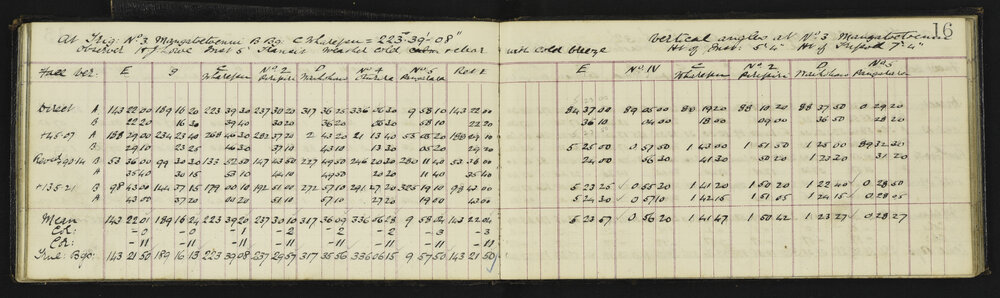 16
At Trig: No 3. Mangatoetoenui B Bg. C Wharepu = 223°-39'-08"
Observer H J Lowe Inst 5" Transit Weather cold calm & clear with cold breeze
Vertical angles at No 3 Mangatoetoenui
Ht of Inst: 5' 4" Ht of Tripod 7' 4"
Face Ver: E 9 C Wharepu No 2 D No 4 No 5 Rod E
E No IV C Wharepu No 2 D No 5
Direct A 143 22 00 189 16 20 223 39 30 237 30 20 317 36 25 336 06 30 9 58 10 143 22 00
84 37 00 89 05 00 88 19 20 88 10 20 88 37 50 0 29 20
B 22 20 16 30 39 40 30 20 36 20 06 30 58 10 22 20
36 10 04 00 18 00 09 00 36 50 28 20
+45·07 A 188 29 00 234 23 40 268 46 30 282 37 20 2 43 20 21 13 40 55 05 20 188 29 10
5 25 00 0 57 50 1 43 00 1 51 50 1 25 00 89 32 20
B 29 10 23 25 46 30 37 10 43 10 13 30 05 20 29 20
24 00 56 30 41 30 50 20 1 23 20 31 20
Rever: 90 14 B 53 36 00 99 30 30 133 52 50 147 43 50 227 49 50 246 20 30 280 11 40 53 36 00
A 35 40 30 15 53 10 44 10 49 50 20 20 11 40 35 40
+135·21 B 98 43 00 144 37 15 179 00 10 192 51 00 272 57 10 291 27 20 325 19 10 98 43 00
5 23 25 0 55 20 1 41 20 1 50 20 1 22 40 0 28 50
A 43 00 37 20 00 20 51 10 57 10 27 20 19 00 43 00
5 24 30 0 57 10 1 42 15 1 51 05 1 24 15 0 28 05
Mean 143 22 01 189 16 24 223 39 20 237 30 10 317 36 09 336 06 28 9 58 04 143 22 04
5 23 57 0 56 20 1 41 47 1 50 42 1 23 27 0 28 27
Cr: -0 -0 -1 -2 -2 -2 -3 -3
Cr: -11 -11 -11 -11 -11 -11 -11 -11
True: Bgs: 143 21 50 189 16 13 223 39 08 237 29 57 317 35 56 336 06 15 9 57 50 143 21 50